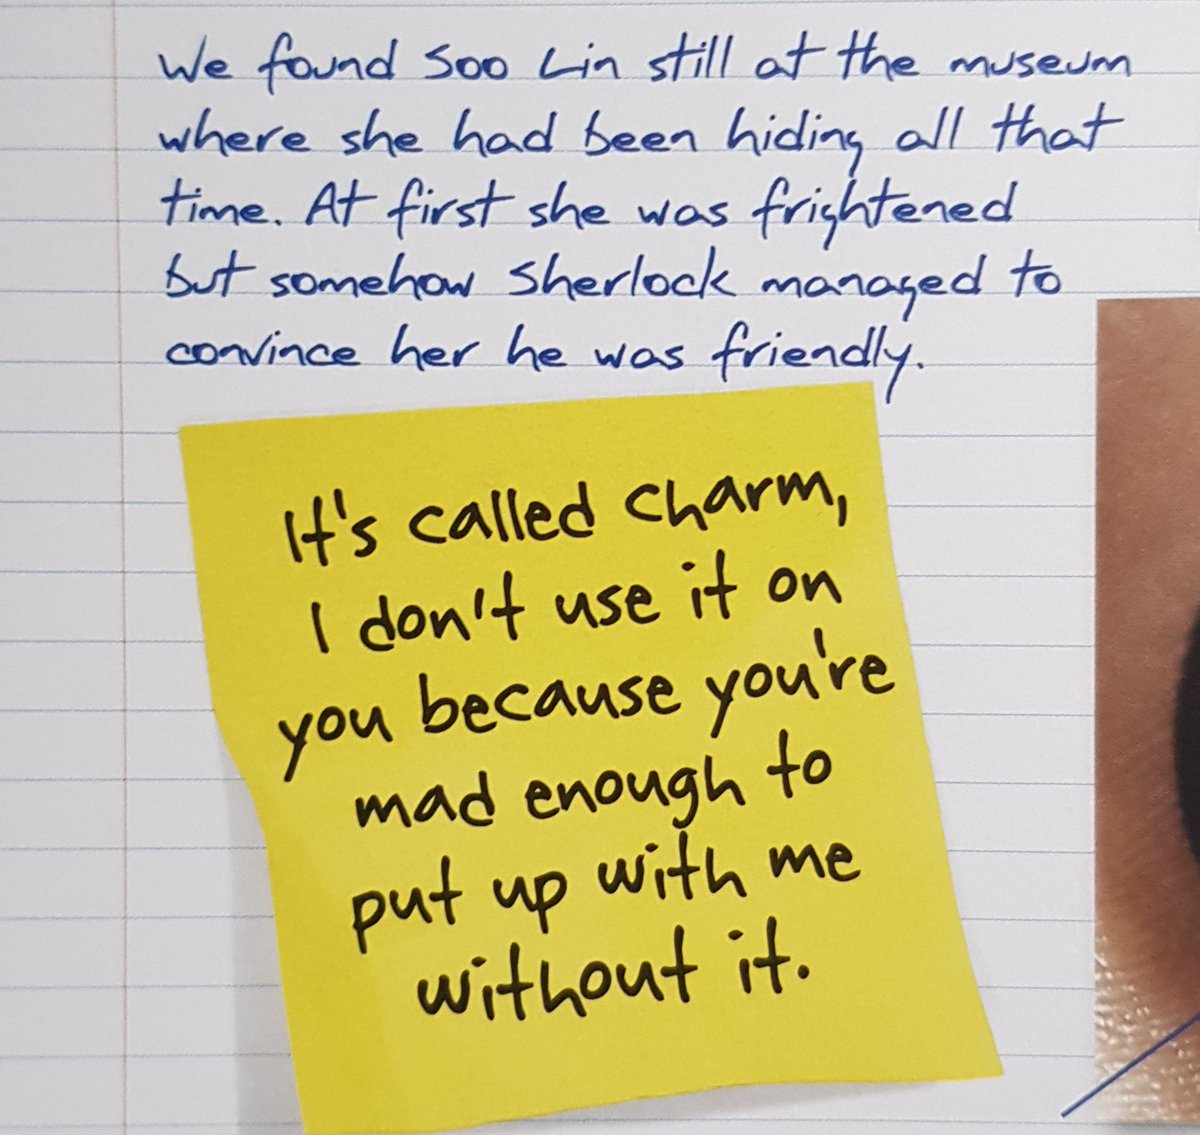 We found Soo Lin still at the museum
where she had been hiding all that
time. At first she was frightened
but somehow Sherlock managed to
convince her he was friendly.
It's called charm,
I don't use it on
you because you're
mad enough to
put up with me
without it.